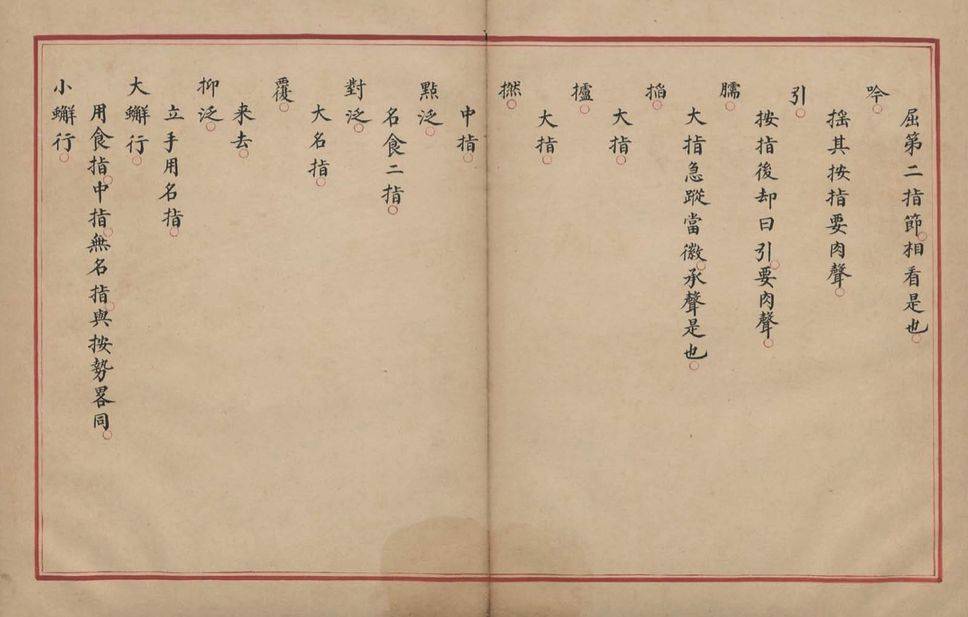 屈第二指節。相看是也。
吟。
搖其按指要肉聲。
引。
按指後却曰引。要肉聲。
臑。
大指急蹤當徽。承聲是也。
掐。
大指。
攎。
大指。
撚。
中指。
點泛。
名食二指。
對泛。
大名指。
覆。
来去。
抑泛。
立手用名指。
大蠏行。
用食指。中指。無名指。與按勢畧同。
小蠏行。